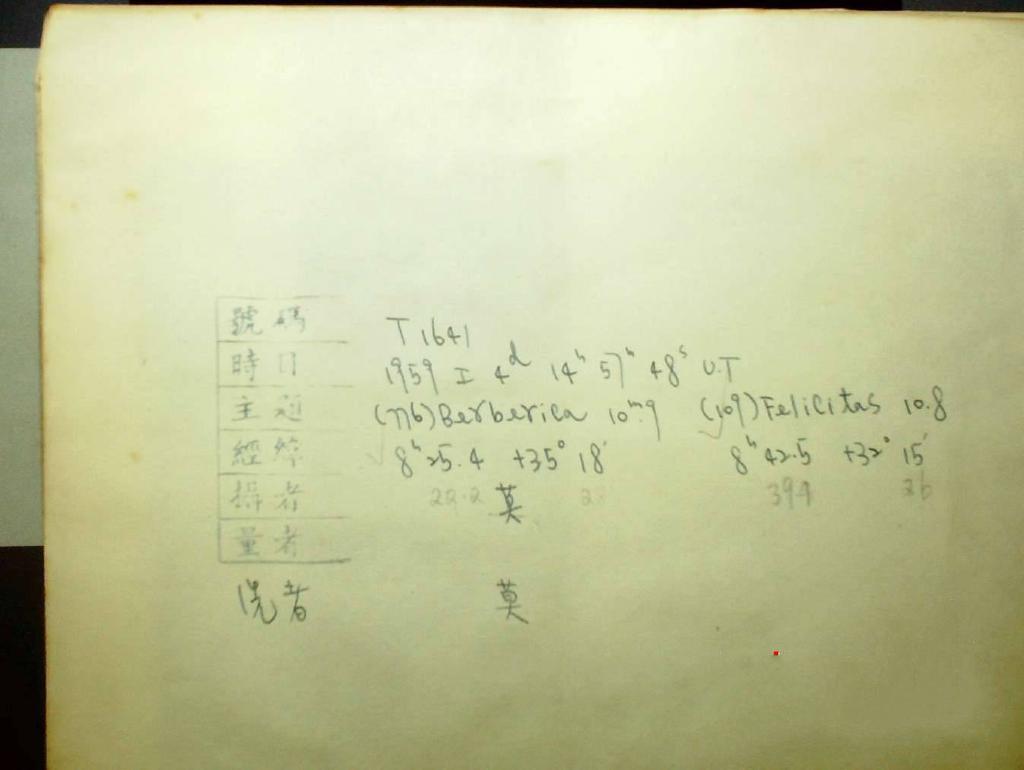 號碼 T 1641
時日 1959 I 4ᵈ 14ʰ 57ᵐ 48ˢ U.T
主題 (776) Berberica 10ᵐ.9 (109) Felicitas 10.8
經緯 8ʰ 25.4 +35° 18′ 8ʰ 42.5 +32° 15′
攝者 22.2 莫 28 394 26
量者
洗者 莫